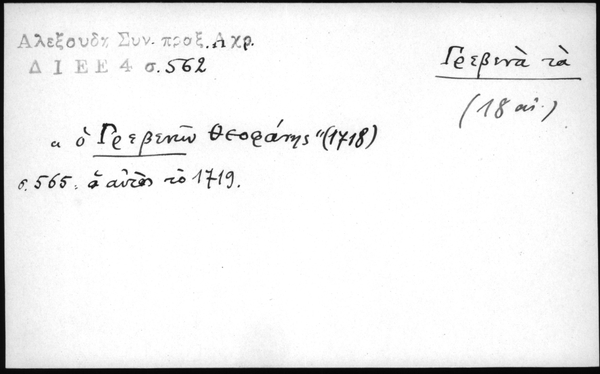 Αλεξουδη Συν. προξ. Αχρ.
Δ Ι Ε Ε 4 σ. 562
Γρεβενὰ τὰ
(18 αἰ.)
"ὁ Γρεβενῶν Θεοφάνης" (1718)
σ. 565. ὁ αὐτὸς τὸ 1719.